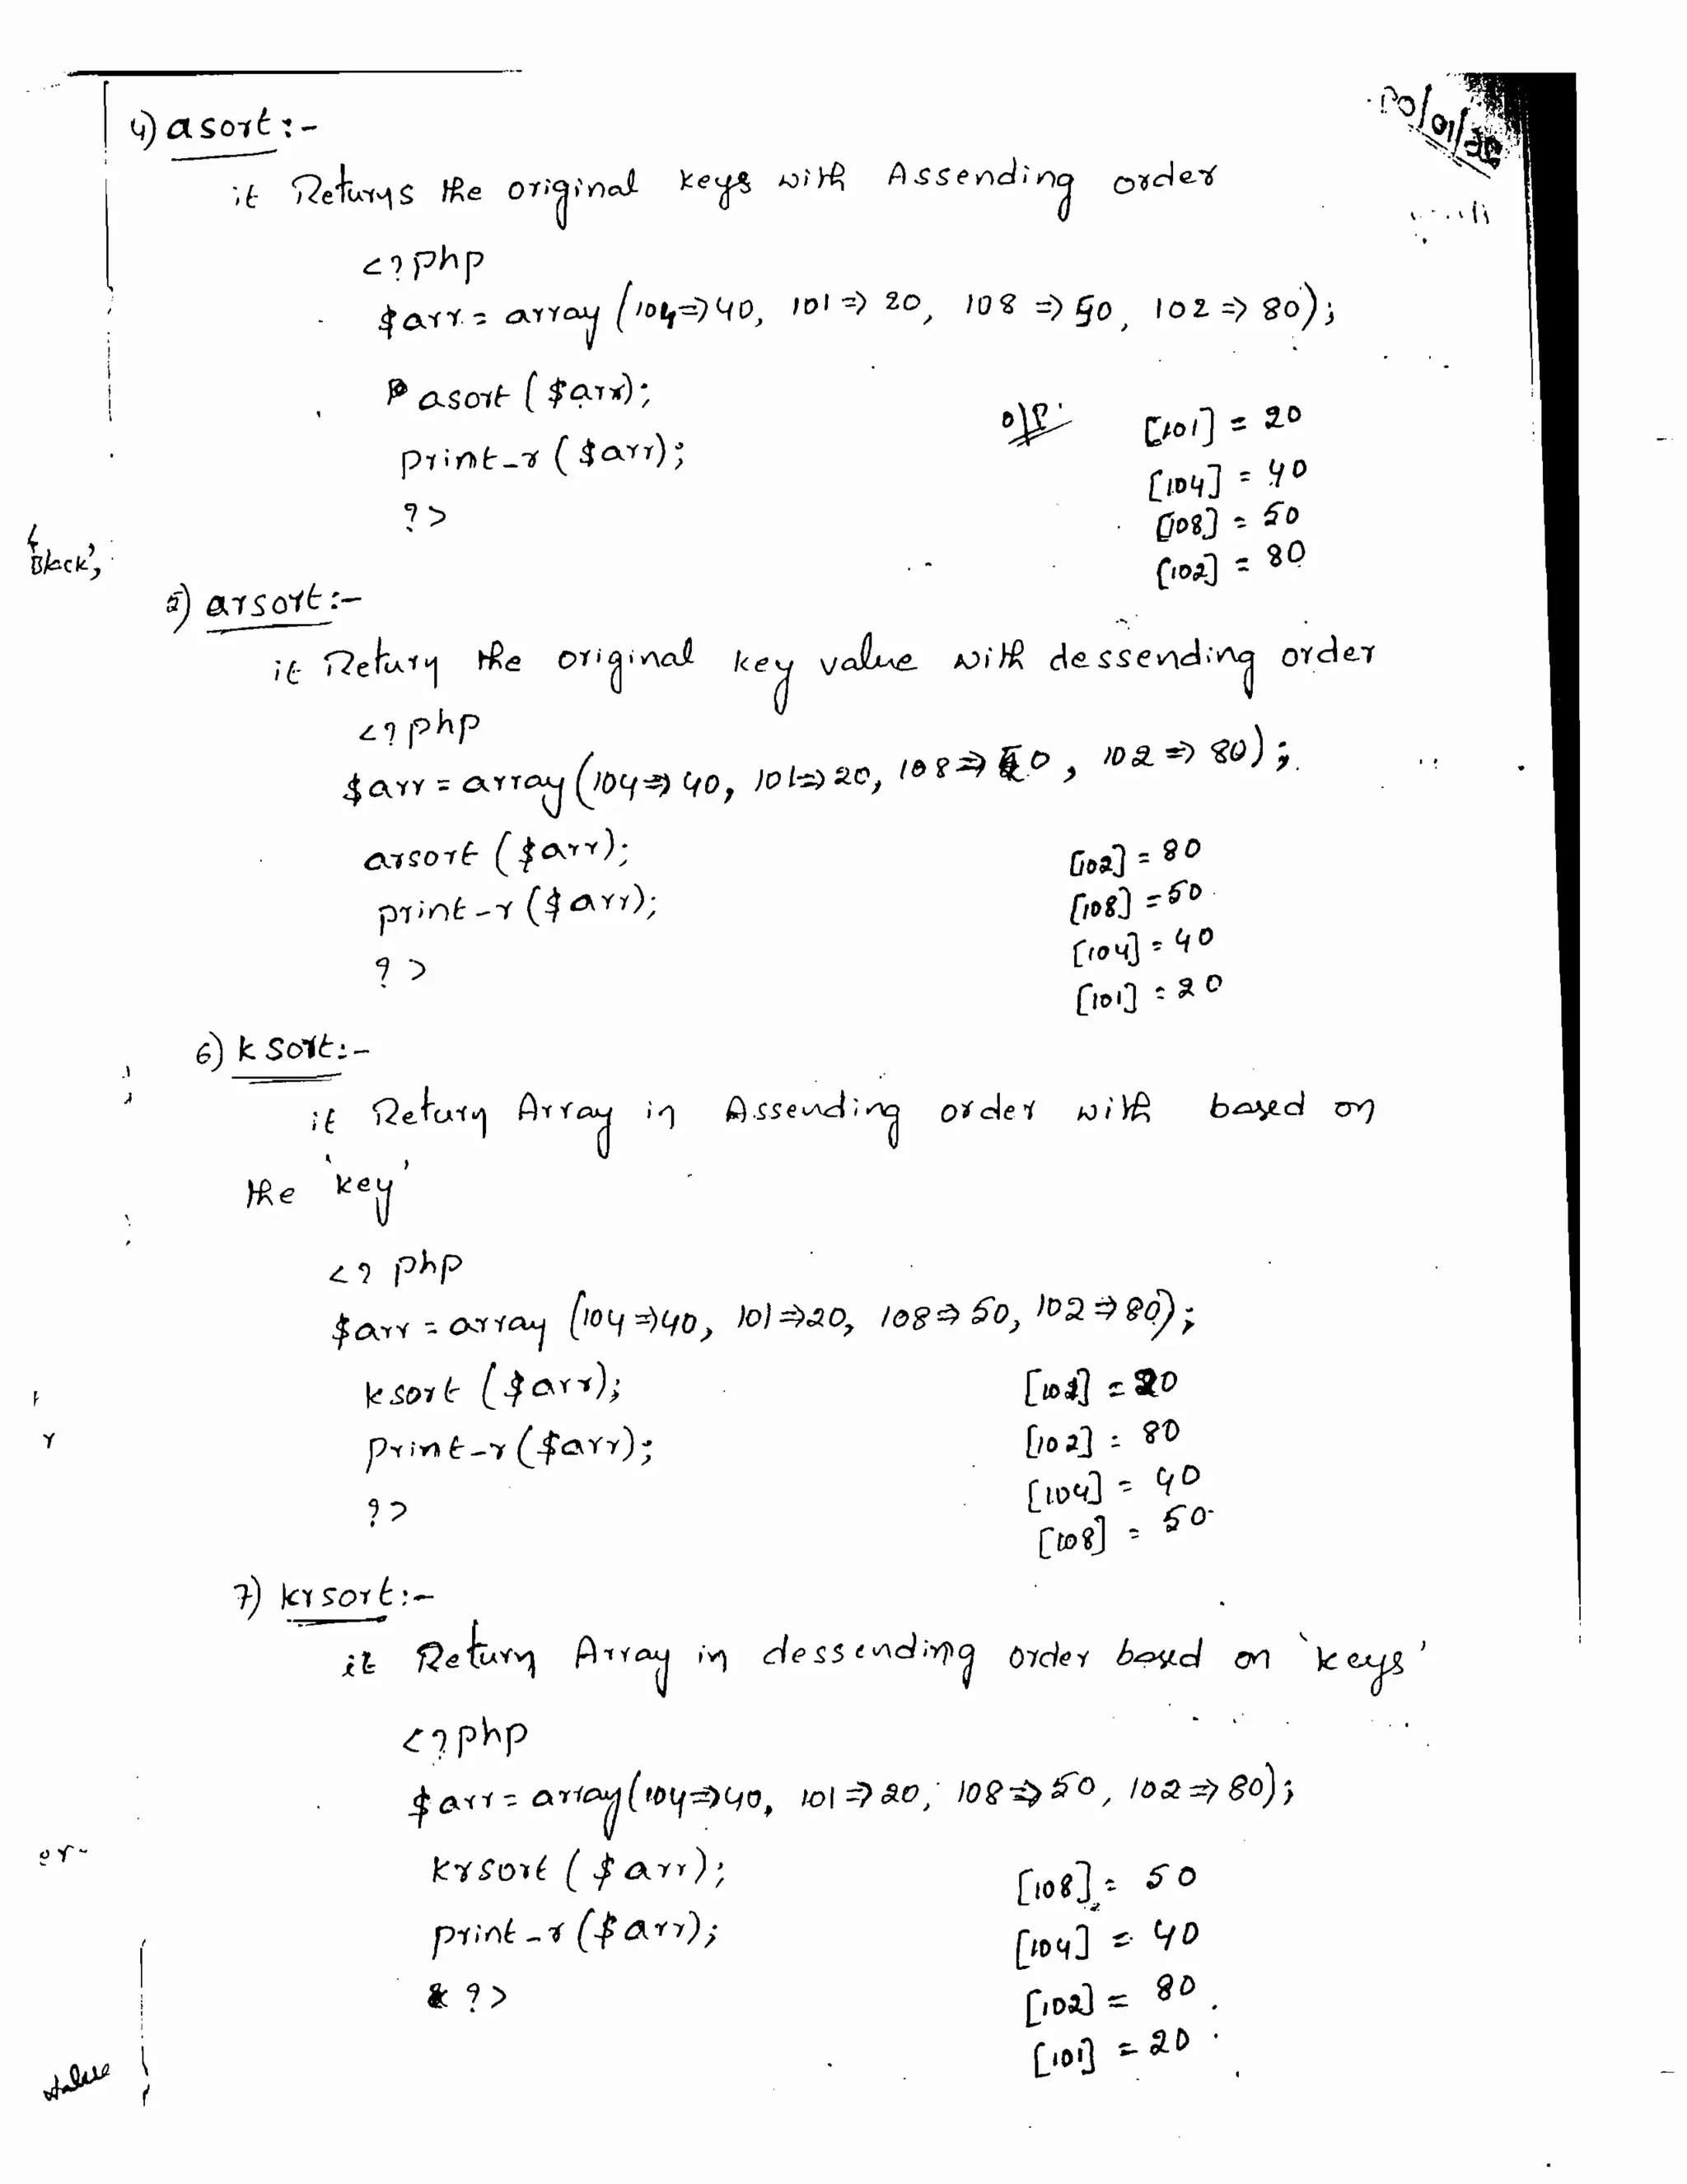 4) asort:-
it Returns the original keys with Assending order
<?php
$arr = array (104=>40, 101=>20, 108=>50, 102=>80);
asort ($arr);
print_r ($arr);
?>
o/p:
[101] = 20
[104] = 40
[108] = 50
[102] = 80
Black',
5) arsort:-
it Return the original key value with dessending order
<?php
$arr = array (104=>40, 101=>20, 108=>50, 102=>80);
arsort ($arr);
print-r ($arr);
?>
[102] = 80
[108] = 50
[104] = 40
[101] = 20
6) ksort:-
it Return Array in Assending order with based on
the 'key'
<?php
$arr = array (104=>40, 101=>20, 108=>50, 102=>80);
ksort ($arr);
print-r ($arr);
?>
[101] = 20
[102] = 80
[104] = 40
[108] = 50
7) krsort:-
it Return Array in dessending order based on 'keys'
<?php
$arr = array(104=>40, 101=>20, 108=>50, 102=>80);
krsort ($arr);
print_r ($arr);
?>
[108] = 50
[104] = 40
[102] = 80
[101] = 20
value